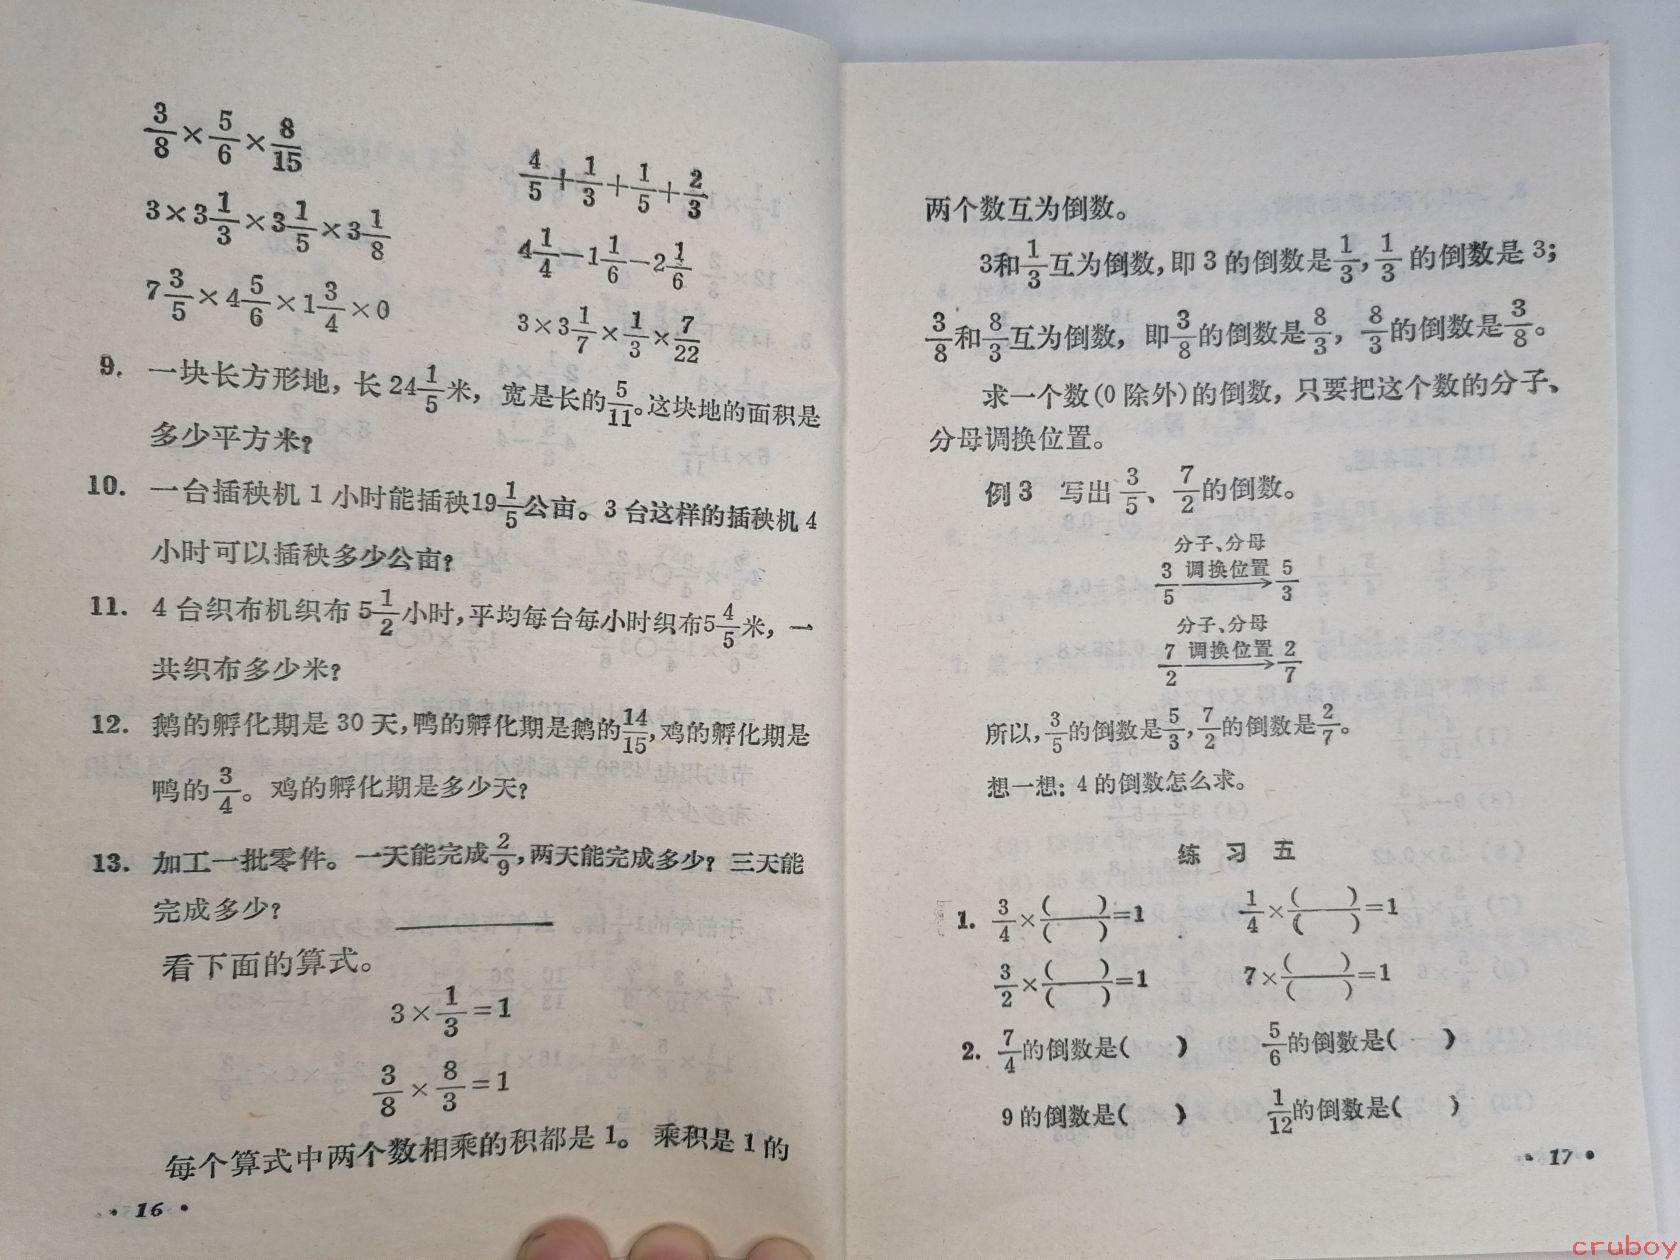 3/8×5/6×8/15
4/5+1/3+1/5+2/3
3×3 1/3×3 1/5×3 1/8
4 1/4−1 1/6−2 1/6
7 3/5×4 5/6×1 3/4×0
3×3 1/7×1/3×7/22
9. 一块长方形地，长 24 1/5 米，宽是长的 5/11。这块地的面积是
多少平方米？
10. 一台插秧机 1 小时能插秧 19 1/5 公亩。3 台这样的插秧机 4
小时可以插秧多少公亩？
11. 4 台织布机织布 5 1/2 小时，平均每台每小时织布 5 4/5 米，一
共织布多少米？
12. 鹅的孵化期是 30 天，鸭的孵化期是鹅的 14/15，鸡的孵化期是
鸭的 3/4。鸡的孵化期是多少天？
13. 加工一批零件。一天能完成 2/9，两天能完成多少？三天能
完成多少？
看下面的算式。
3×1/3=1
3/8×8/3=1
每个算式中两个数相乘的积都是 1。乘积是 1 的
·16·
两个数互为倒数。
3和 1/3 互为倒数，即 3 的倒数是 1/3，1/3 的倒数是 3；
3/8 和 8/3 互为倒数，即 3/8 的倒数是 8/3，8/3 的倒数是 3/8。
求一个数（0 除外）的倒数，只要把这个数的分子、
分母调换位置。
例 3 写出 3/5、7/2 的倒数。
分子、分母
3/5 调换位置→ 5/3
分子、分母
7/2 调换位置→ 2/7
所以，3/5 的倒数是 5/3，7/2 的倒数是 2/7。
想一想：4 的倒数怎么求。
练 习 五
1. 3/4×( )/( )=1 1/4×( )/( )=1
3/2×( )/( )=1 7×( )/( )=1
2. 7/4 的倒数是( ) 5/6 的倒数是( )
9 的倒数是( ) 1/12 的倒数是( )
·17·
cruboy